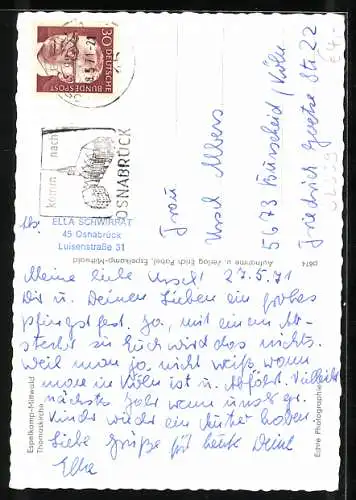 30
DEUTSCHE
BUNDESPOST
komm nach
OSNABRÜCK
Abs.
ELLA SCHWIRRAT
45 Osnabrück
Luisenstraße 31
Frau
Ursel Albers
5673 Burscheid/Köln
Friedrich Goetze Str. 22
p674 Aufnahme u. Verlag Erich Pabel, Espelkamp-Mittwald
Espelkamp-Mittwald
Thomaskirche
Echte Photographie
Meine liebe Ursel! 27.5.71
Dir u. Deinen Lieben ein frohes
Pfingstfest. Ja, mit einem Ab-
stecher zu Euch wird das nichts.
Weil man ja nicht weiß wann
man in Köln ist u. Abfährt. Vielleicht
nächstes Jahr wenn unsere
Kinder wieder ein Auto haben
Liebe Grüße für heute Deine
Ella